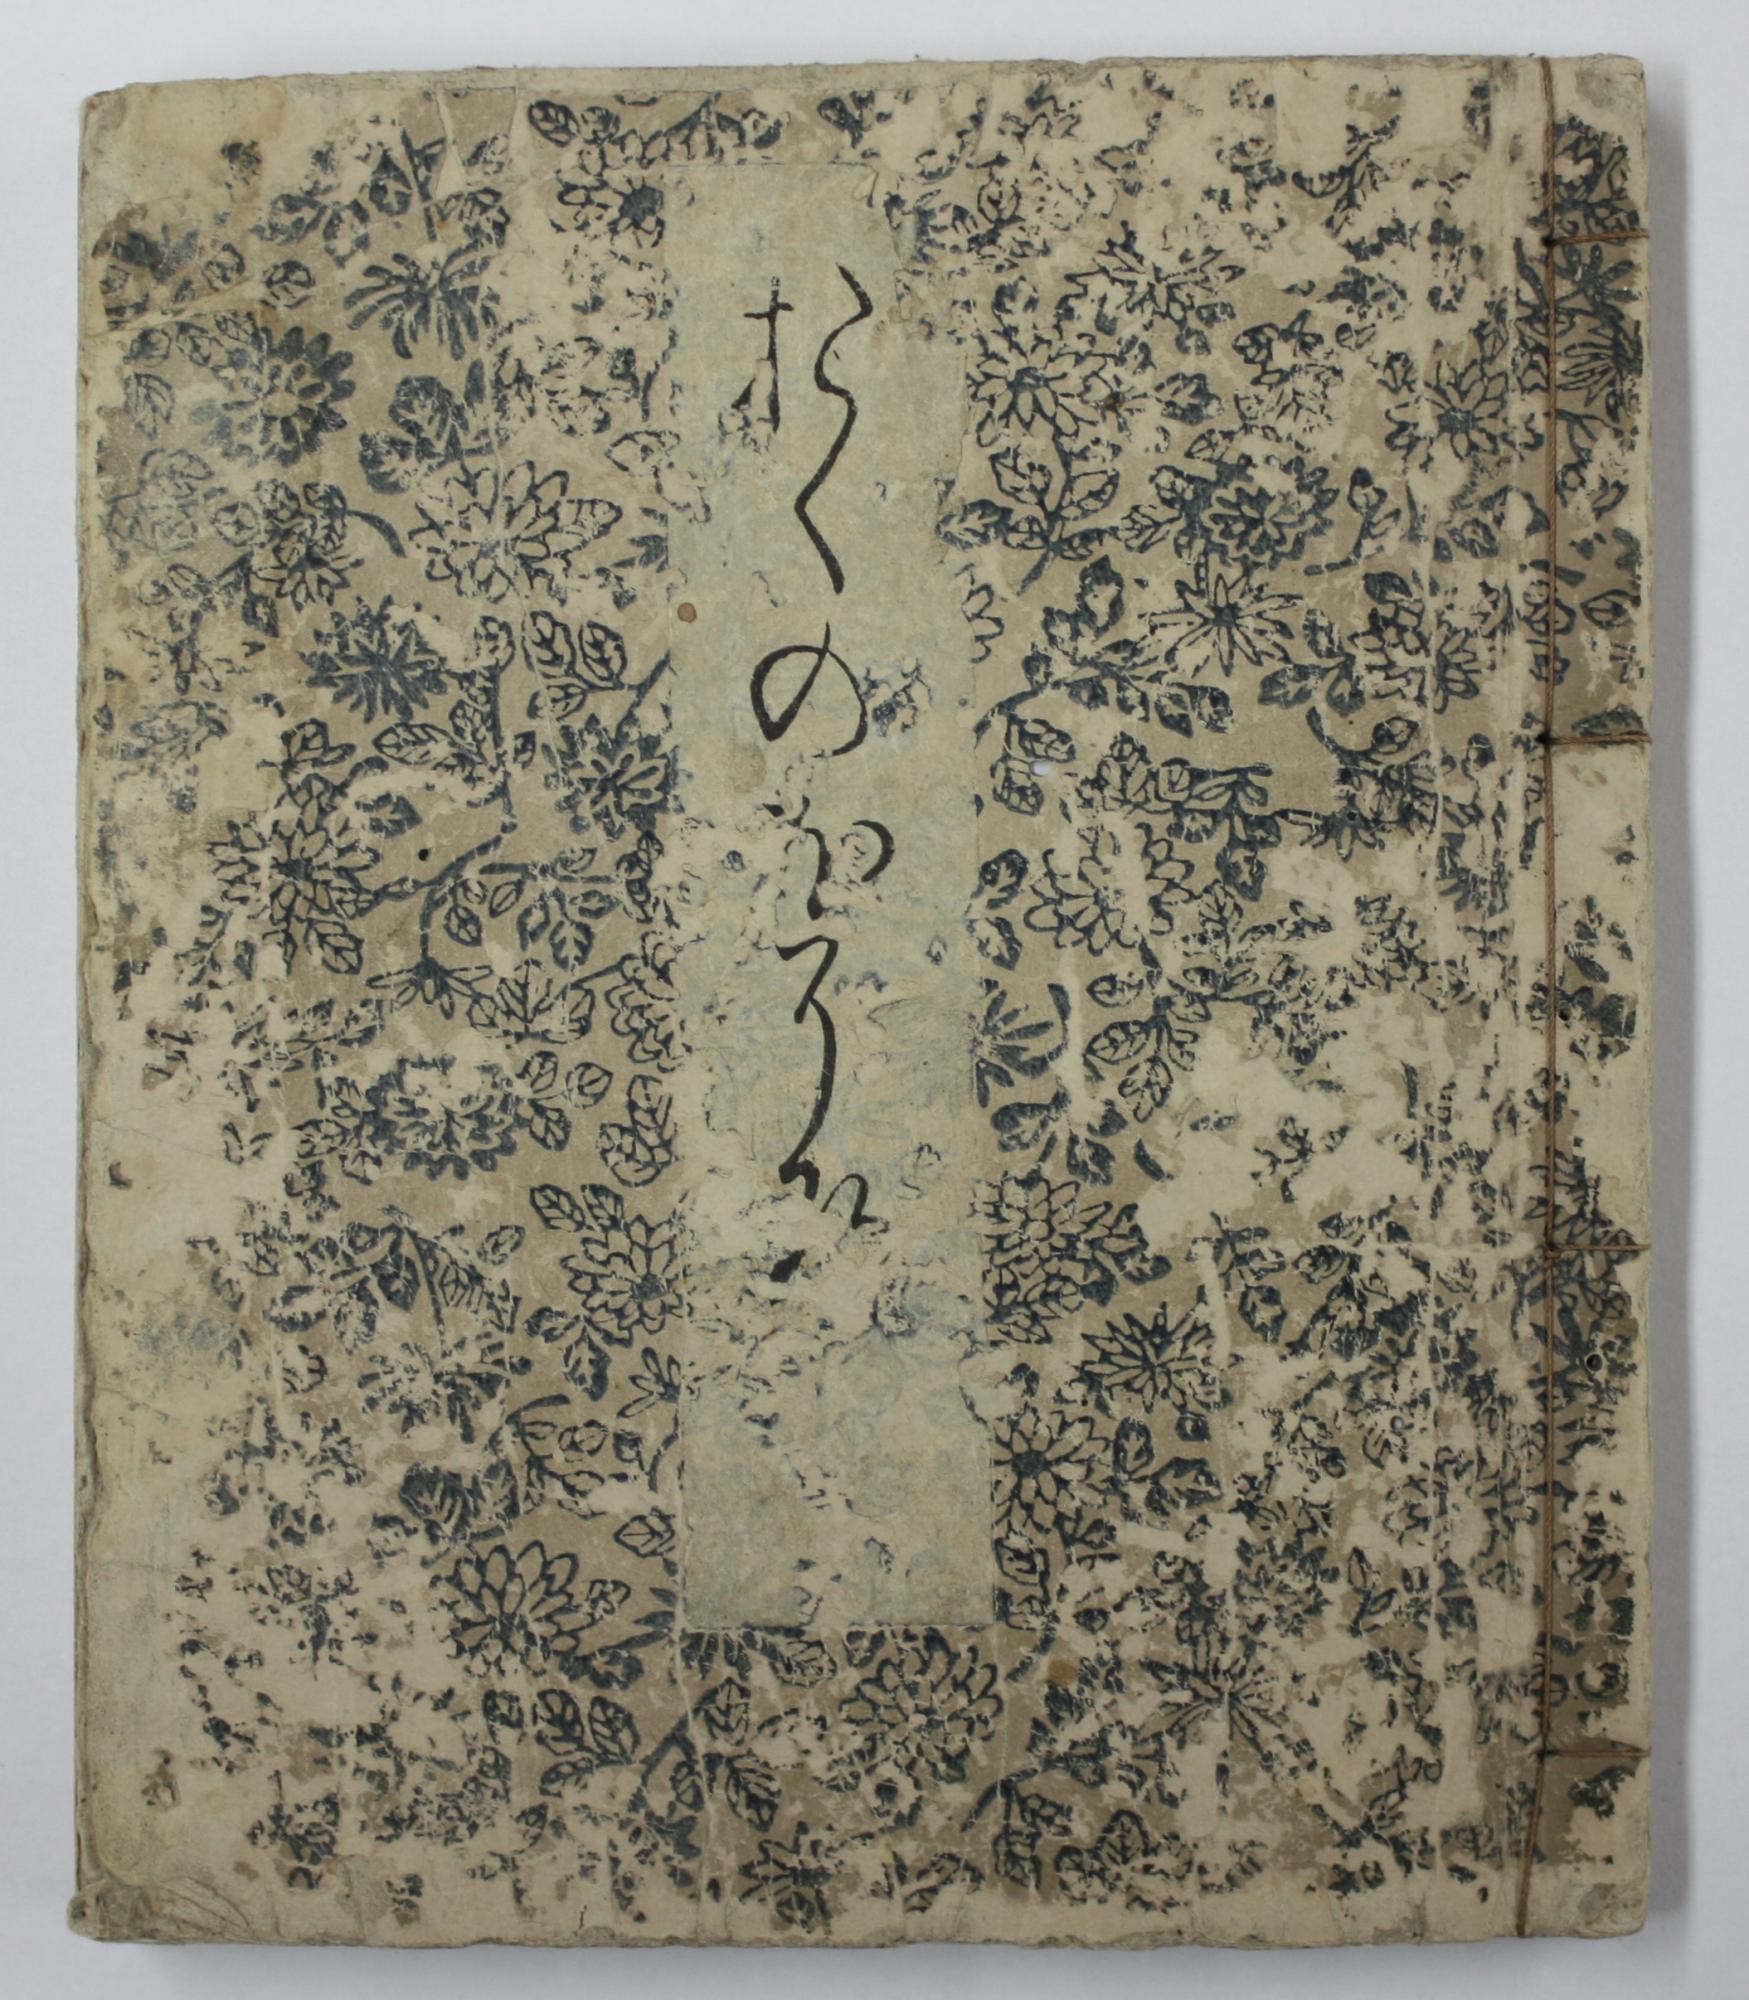 おくのほそ道